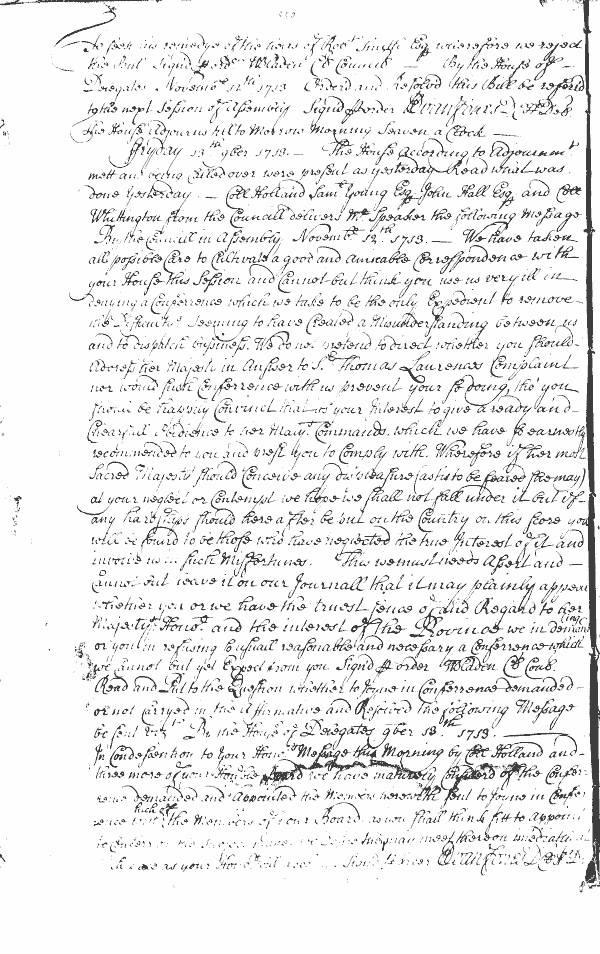 to seek his remedye of the heirs of Robt Smith Esq wherefore we reject
the Bill Signd p order WBladen Cl Council — By the House of
Delegates Novembr 12th 1713 Orderd and Resolvd this Bill be referrd
to the next Session of Assembly Signd p order Cl H Del
the House Adjourns till to Morrow Morning Seaven a Clock —
Fryday 13th 9ber 1713. — The House According to Adjournmt
mett and being called over were present as yesterday Read what was
done yesterday. — Coll Holland Saml Young Esq John Hall Esq and Coll
Whittington from the Councill delivers Mr Speaker the following Message
By the Councill in Assembly Novembr 12th 1713. — We have taken
all possible Care to Cultivate a good and amicable Correspondence with
your House this Session and Cannot but think you use us very ill in
denying a Conferrence which we take to be the only Expedient to remove
the Difficultys Seeming to have Created a Misunderstanding between us
and to dispatch business. We do not pretend to direct whether you should
Address her Majesty in Answer to Sr Thomas Laurences Complaint
nor would such Conferrence with us prevent your so doing, tho you
should be happily Convinct that tis your Interest to give a ready and
Chearfull Obedience to her Majtys Commands, which we have so earnestly
recommended to you and prest you to Comply with. Wherefore if her most
Sacred Majesty should Conceive any displeasure (as tis to be feared she may)
at your neglect or Contempt we hope we shall not fall under it but if
any hardships should hereafter be put on the Country on this score you
will be found to be those who have neglected the true Interest of it and
involve us in such Misfortunes. This we must needs Assert and
Cannot but leave it on our Journall that it may plainly appear
whether you or we have the truest sence of and Regard to her
Majestys Honor and the interest of the Province we in demanding
or you in refusing so usuall reasonable and necessary a Conference which
we cannot but yet Expect from you Signd p order WBladen Cl Coun.
Read and Put to the Question whether to Joyne in Conferrence demanded
or not carryed in the Affirmative and Resolved the following Message
be sent viz By the House of Delegates 9ber 13th 1713.
In Condescention to your Honrs Message this Morning by Coll Holland and
three more of your Honble Board we have maturely Considerd of the Confer
rence demanded and Appointed the Members herewith sent to Joyne in Confer
rence with such of the Members of your Board as you shall think fitt to Appoint
to Conferr on the meet thereon imediatly
as your Signd p order Cl H D